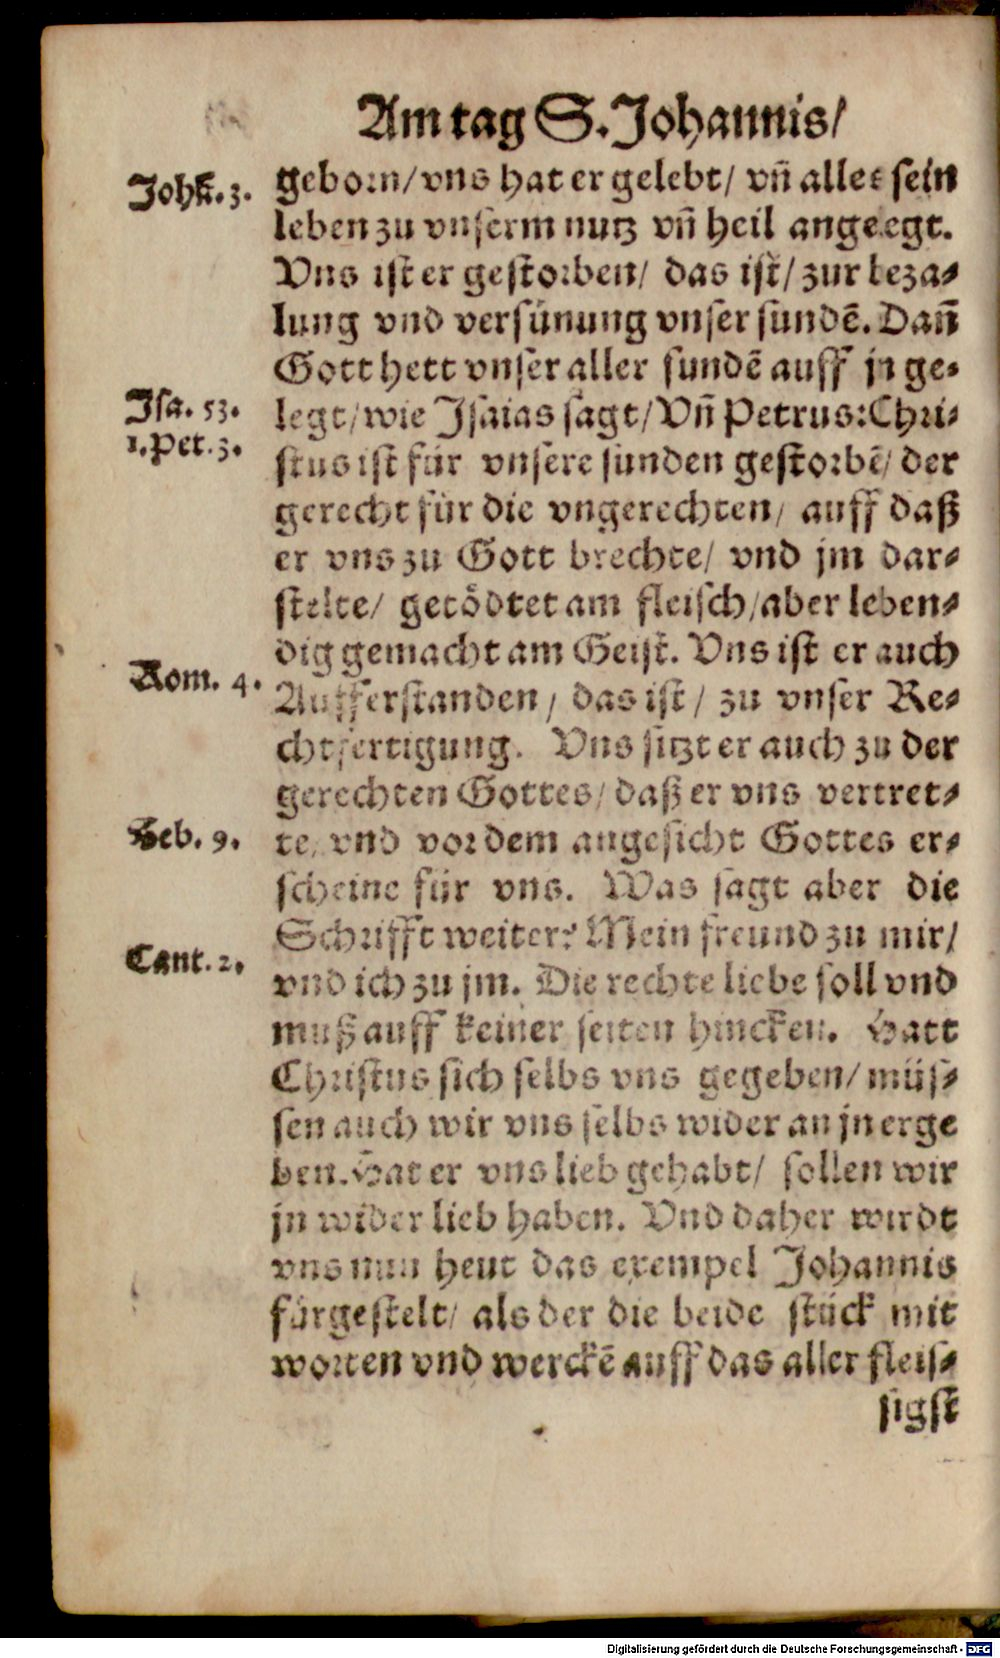 Am tag S. Johannis/
Johñ. 3.
geborn/ vns hat er gelebt/ vñ alles sein
leben zu vnserm nutz vñ heil angelegt.
Vns ist er gestorben/ das ist/ zur beza⸗
lung vnd versünung vnser sundē. Dañ
Gott hett vnser aller sundē auff jn ge⸗
Jsa. 53.
legt/ wie Jsaias sagt/ Vñ Petrus: Chri⸗
1. Pet. 3.
stus ist für vnsere sunden gestorbē/ der
gerecht für die vngerechten/ auff daß
er vns zu Gott brechte/ vnd jm dar⸗
stelte/ getödtet am fleisch/ aber leben⸗
dig gemacht am Geist. Vns ist er auch
Rom. 4.
Aufferstanden/ das ist/ zu vnser Re⸗
chtfertigung. Vns sitzt er auch zu der
gerechten Gottes/ daß er vns vertret⸗
Heb. 9.
te/ vnd vor dem angesicht Gottes er⸗
scheine für vns. Was sagt aber die
Schrifft weiter? Mein freund zu mir/
Cant. 2.
vnd ich zu jm. Die rechte liebe soll vnd
muß auff keiner seiten hincken. Hatt
Christus sich selbs vns gegeben/ müs⸗
sen auch wir vns selbs wider an jn erge
ben. Hat er vns lieb gehabt/ sollen wir
jn wider lieb haben. Vnd daher wirdt
vns nun heut das exempel Johannis
fürgestelt/ als der die beide stück mit
worten vnd werckē auff das aller fleis⸗
sigst
Digitalisierung gefördert durch die Deutsche Forschungsgemeinschaft - DFG